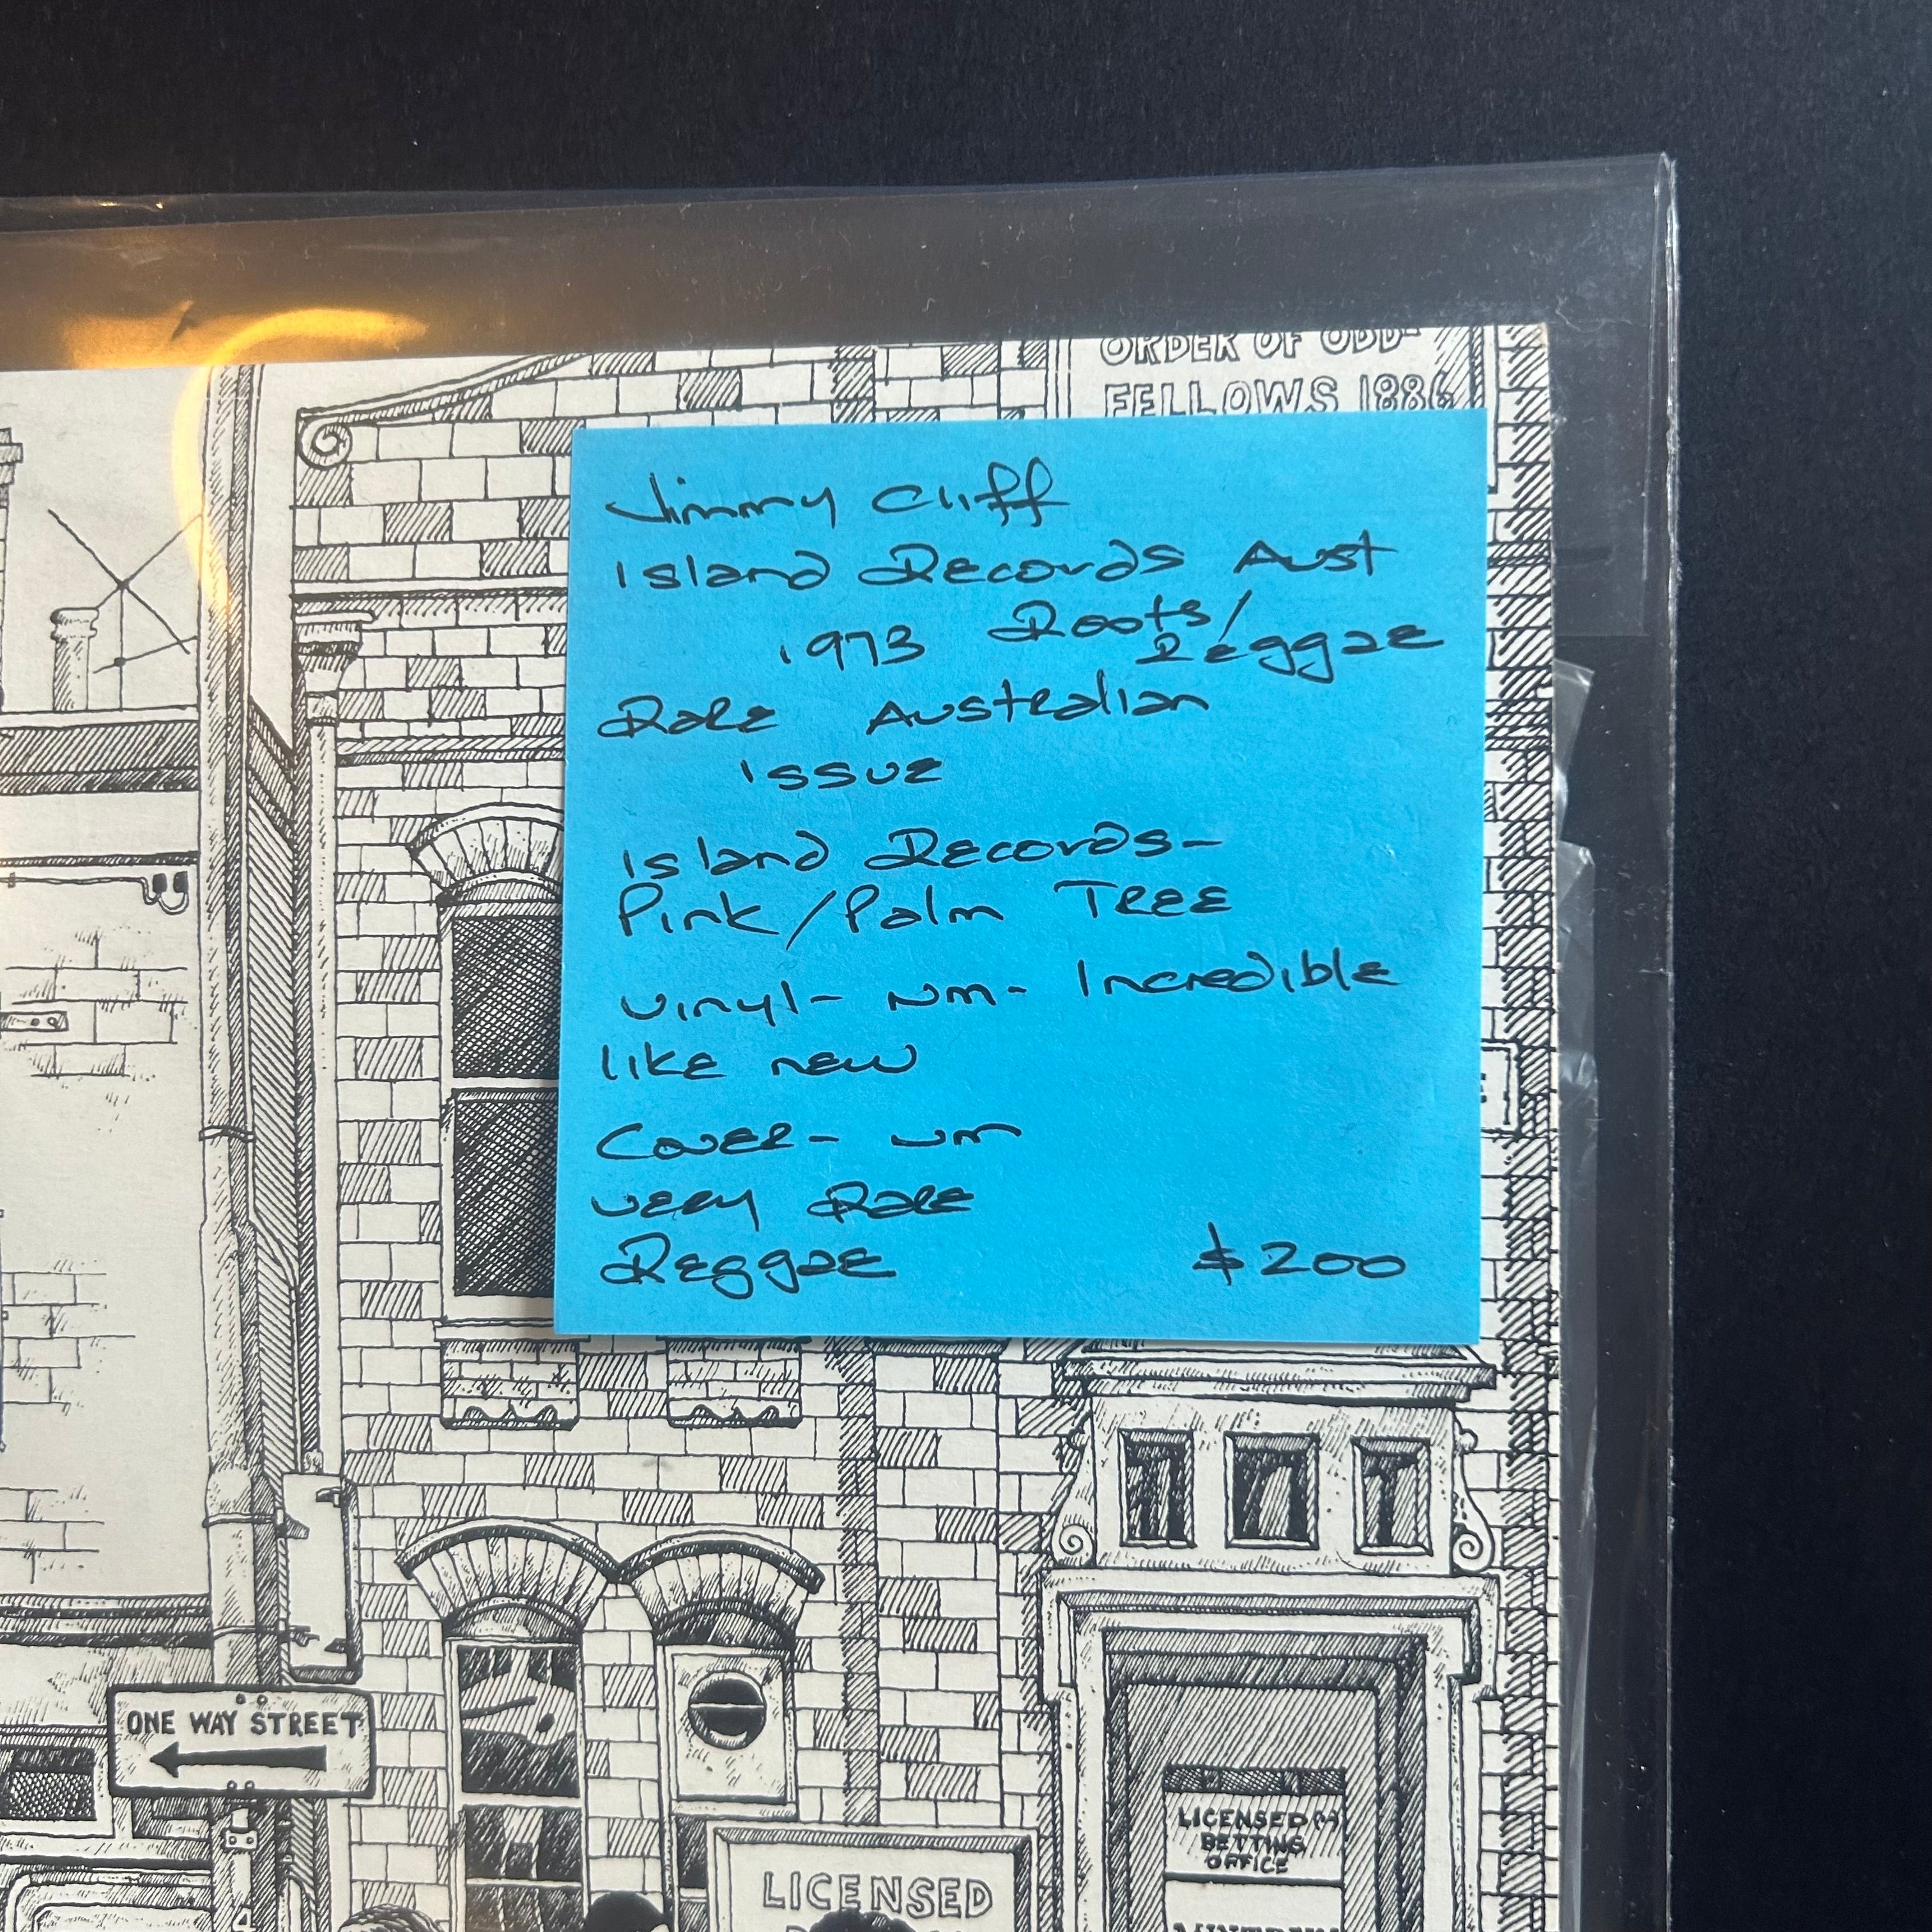 ORDER OF ODD-
FELLOWS 1886
Jimmy Cliff
Island Records Aust
1973 Roots/
Reggae
Rare Australian
issue
Island Records-
Pink/Palm Tree
Vinyl- NM- Incredible
like new
Cover- NM
Very Rare
Reggae $200
ONE WAY STREET
LICENSED
BETTING
OFFICE
LICENSED